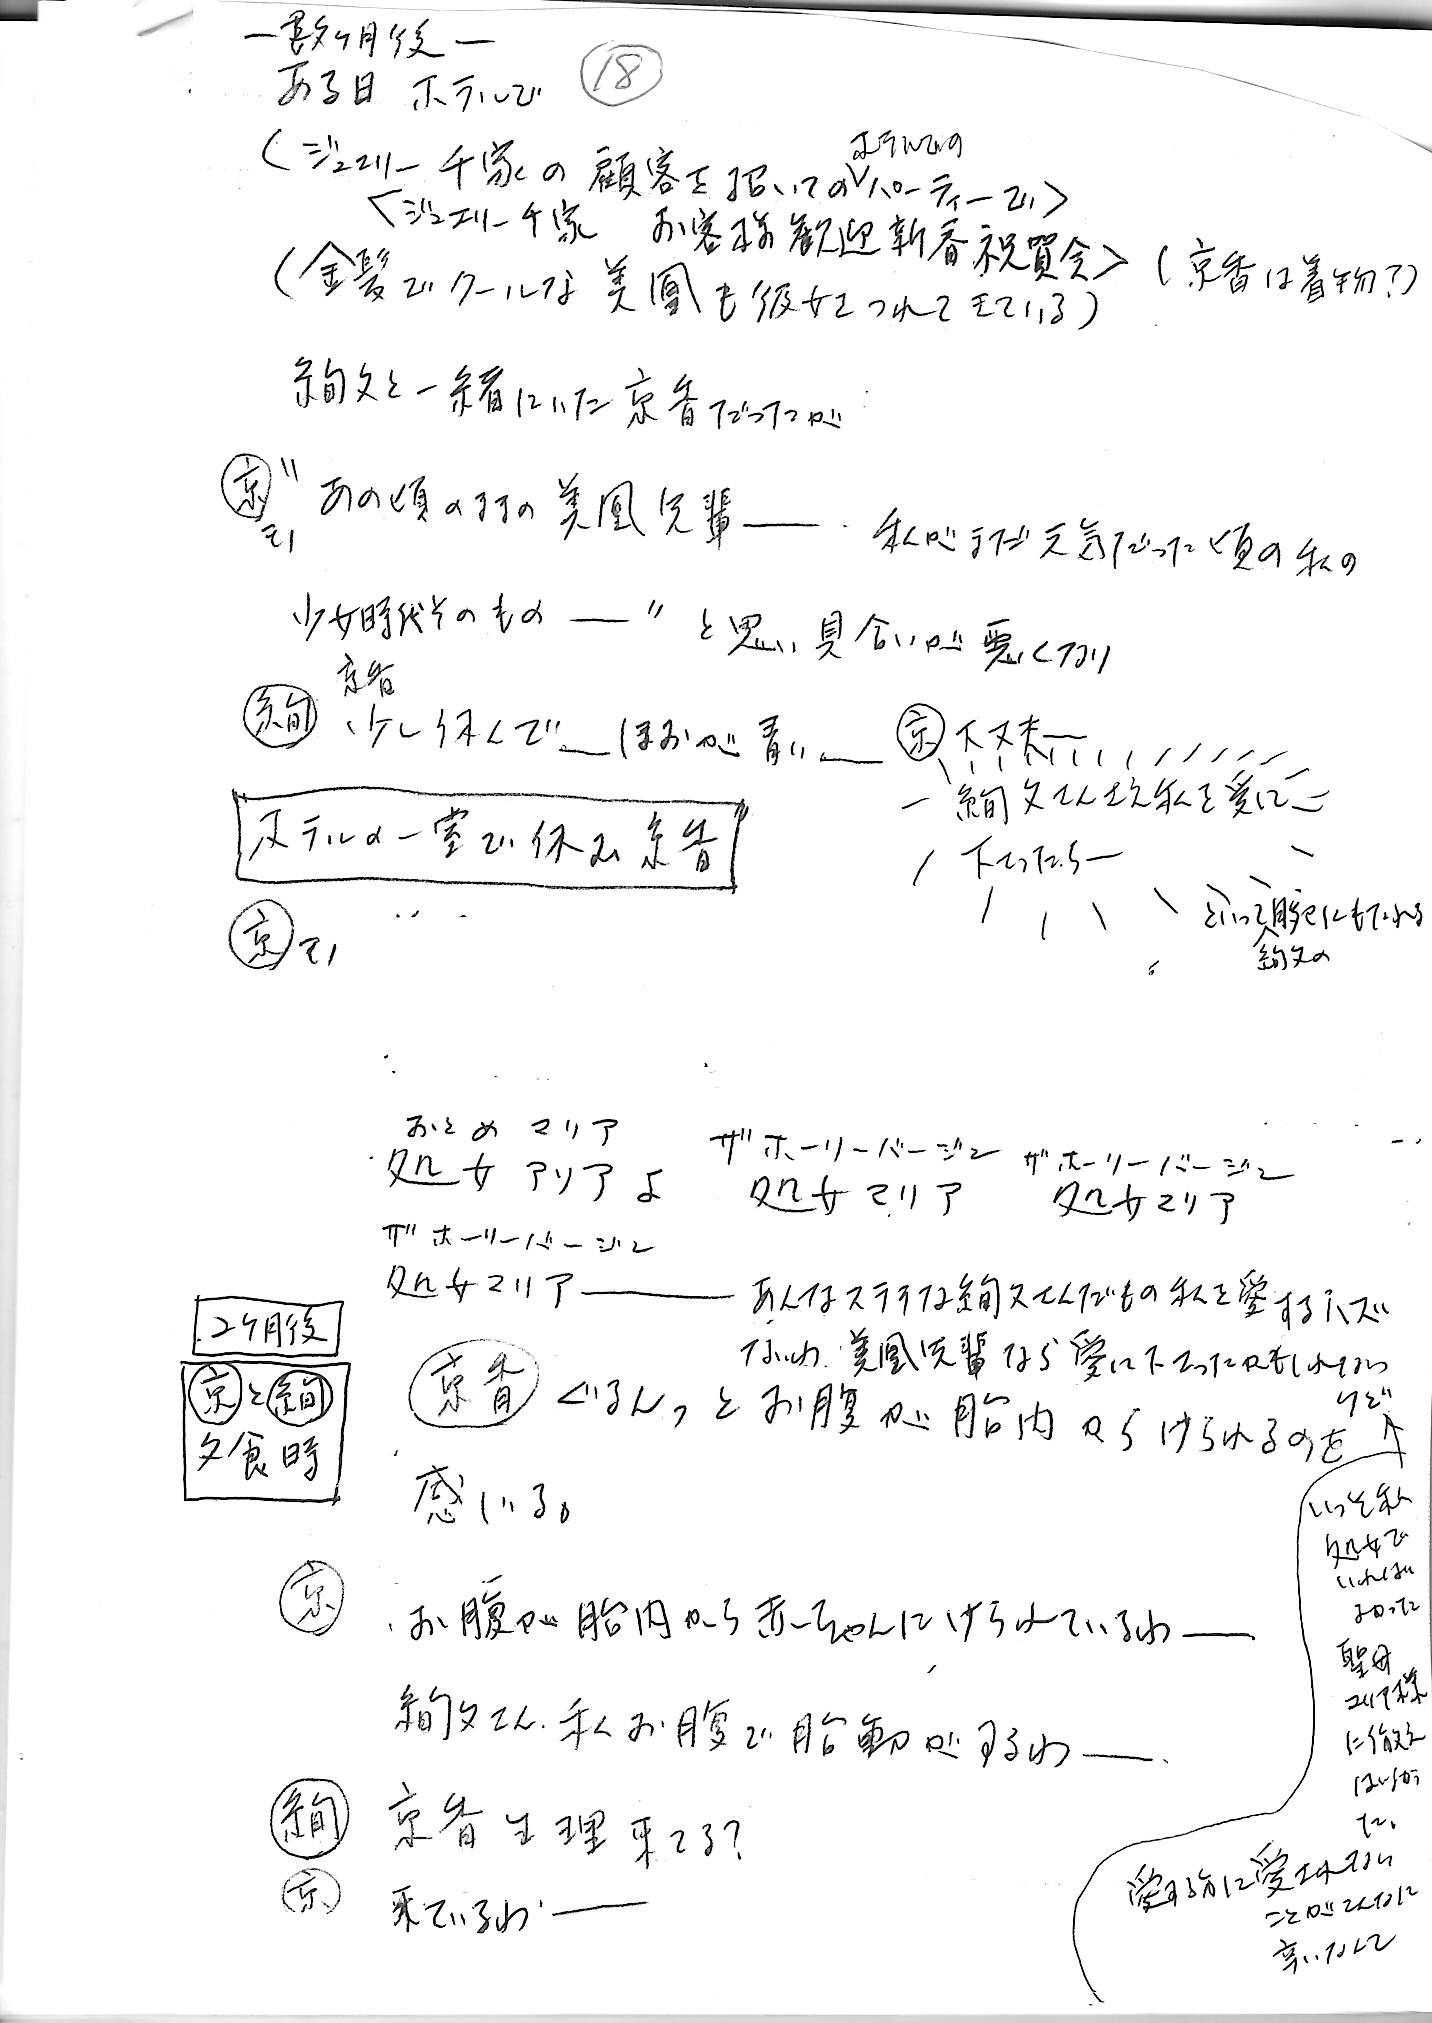 —数ケ月後—
ある日 ホテルで
18
(ジュエリー千家の顧客を招いての ホテルでの パーティーで〉
〈ジュエリー千家 お客様歓迎新春祝賀会〉(京香は着物?)
(金髪でクールな美凰も彼女をつれてきている)
絢文と一緒にいた京香だったが
京 モノ "あの頃のままの美凰先輩——. 私がまだ元気だった頃の私の
少女時代そのもの——" と思い具合いが悪くなり
絢 京香 少し休んで—ほおが青い—
京 大丈夫—
—絢文さんさえ私を愛して
下さったら—
といって絢文の腕にもたれる
ホテルの一室で休む京香
京 モノ
おとめ マリア
処女 アリアよ
ザ ホーリーバージン
処女マリア
ザ ホーリーバージン
処女マリア
ザ ホーリーバージン
処女マリア——— あんなステキな絢文さんだもの私を愛するハズ
ないわ 美凰先輩なら愛して下さったかもしれない
けど
いっそ私
処女で
いれば
よかった
聖母
マリア様
に
愛する方に愛されない
ことがこんなに
辛いなんて
2ケ月後
京と絢
夕食時
京香 ぐるんっとお腹が胎内からけられるのを
感じる。
京 お腹が胎内から赤ちゃんにけられているわ——
絢文さん.私お腹で胎動がするわ——.
絢 京香生理来てる?
京 来ているわ——